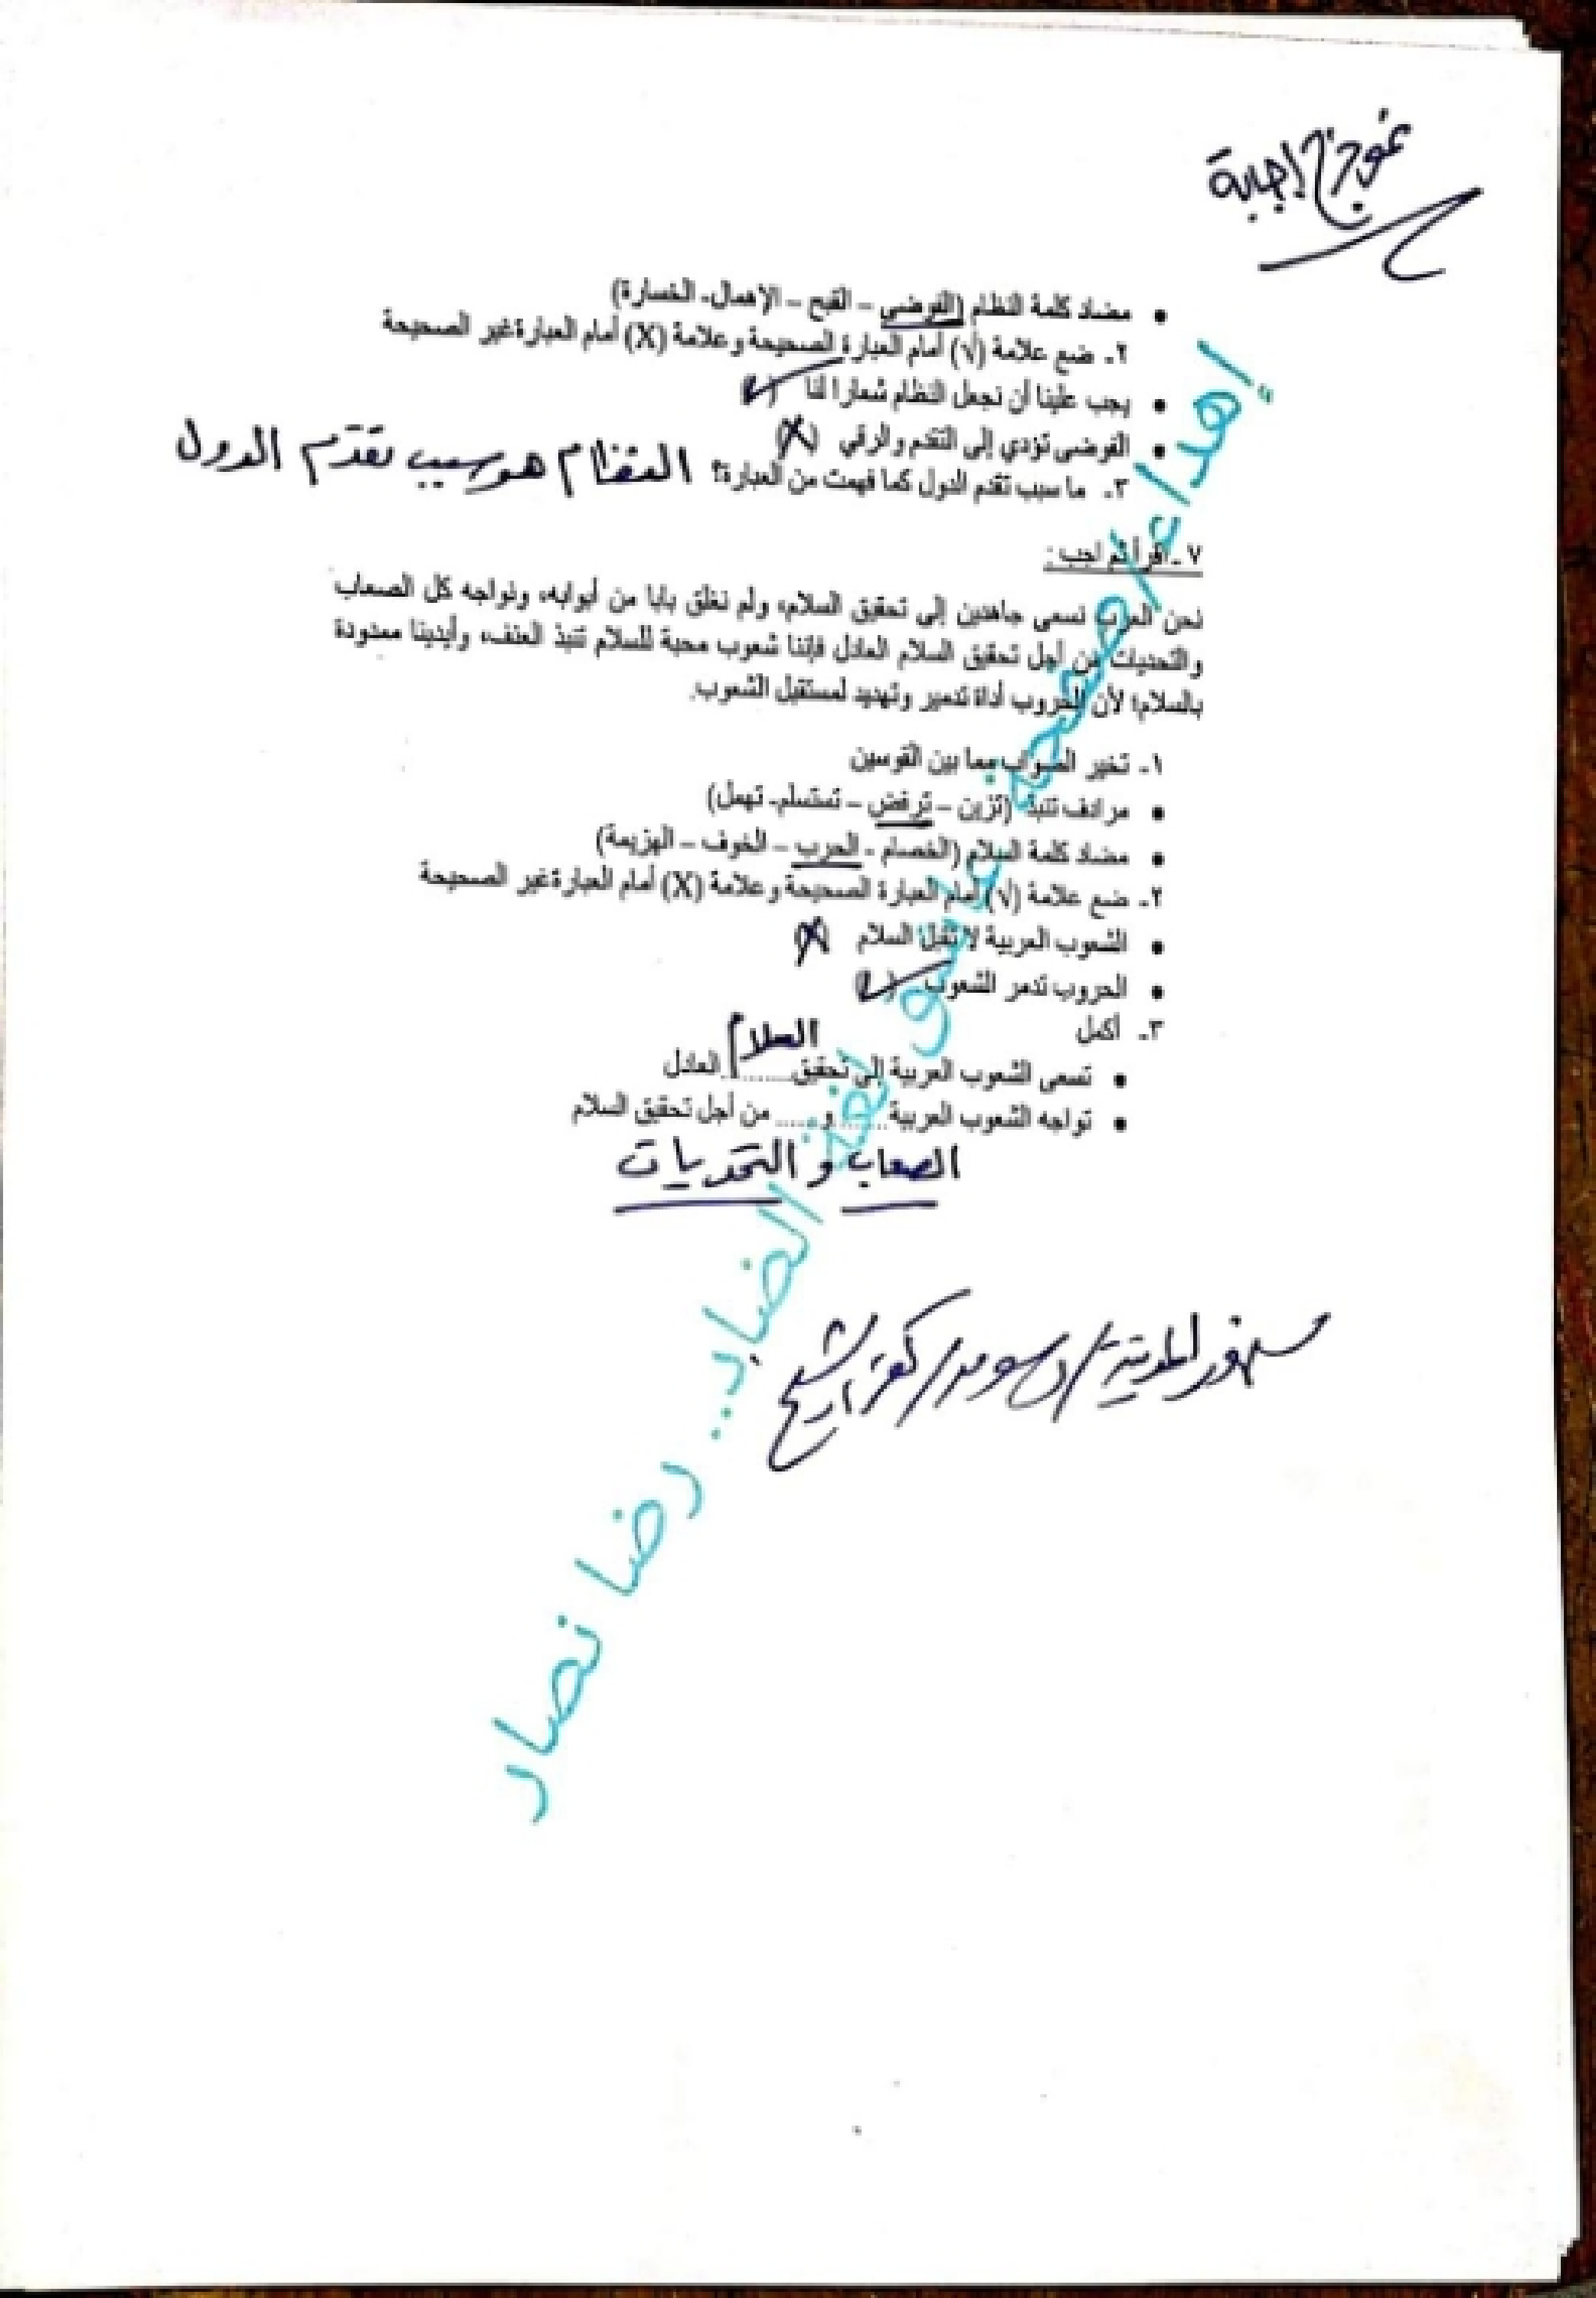 نموذج إجابة
• مضاد كلمة النظام (الفوضى – القبح – الإهمال- الخسارة)
٢- ضع علامة (√) أمام العبارة الصحيحة وعلامة (X) أمام العبارة غير الصحيحة
• يجب علينا أن نجعل النظام شعارا لنا (✓)
• الفوضى تؤدي إلى التقدم والرقي (X)
٣- ما سبب تقدم الدول كما فهمت من العبارة؟ النظام هو سبب تقدم الدول
٧- اقرأ ثم أجب :
نحن العرب نسعى جاهدين إلى تحقيق السلام، ولم نغلق بابا من أبوابه، ونواجه كل الصعاب
والتحديات من أجل تحقيق السلام العادل فإننا شعوب محبة للسلام تنبذ العنف، وأيدينا ممدودة
بالسلام؛ لأن الحروب أداة تدمير وتهديد لمستقبل الشعوب.
١- تخير الصواب مما بين القوسين
• مرادف تنبذ (تزين – ترفض – تستسلم- تهمل)
• مضاد كلمة السلام (الخصام - الحرب – الخوف – الهزيمة)
٢- ضع علامة (√) أمام العبارة الصحيحة وعلامة (X) أمام العبارة غير الصحيحة
• الشعوب العربية لا تقبل السلام (X)
• الحروب تدمر الشعوب (✓)
٣- أكمل
• تسعى الشعوب العربية إلى تحقيق ........ العادل السلام
• تواجه الشعوب العربية ........ و ...... من أجل تحقيق السلام
الصعاب و التحديات
سنهور المدينة / دسوق / كفر الشيخ
إهداء / صفحة عاشق لغة الضاد .. رضا نصار